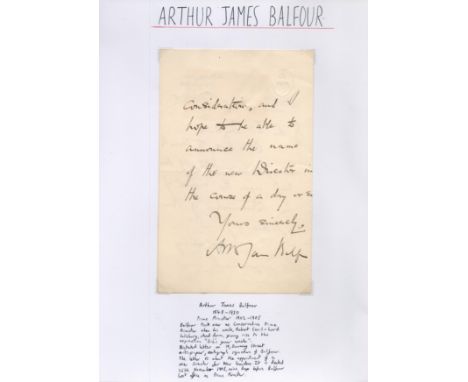 ARTHUR JAMES BALFOUR
Consideration, and I
hope to be able to
announce the name
of the new Director in
the course of a day or so
Yours sincerely,
Arthur James Balfour
1848-1930
Prime Minister 1902-1905
Balfour took over as Conservative Prime
Minister when his uncle, Robert Lord
Salisbury, stood down, giving rise to the
expression "Bob's your uncle".
letter on 10, Downing Street
notepaper, autograph signature of Balfour
The letter is about the appointment of a
new Director for Kew Gardens. It is dated
November 1905, days before Balfour
left office as Prime Minister